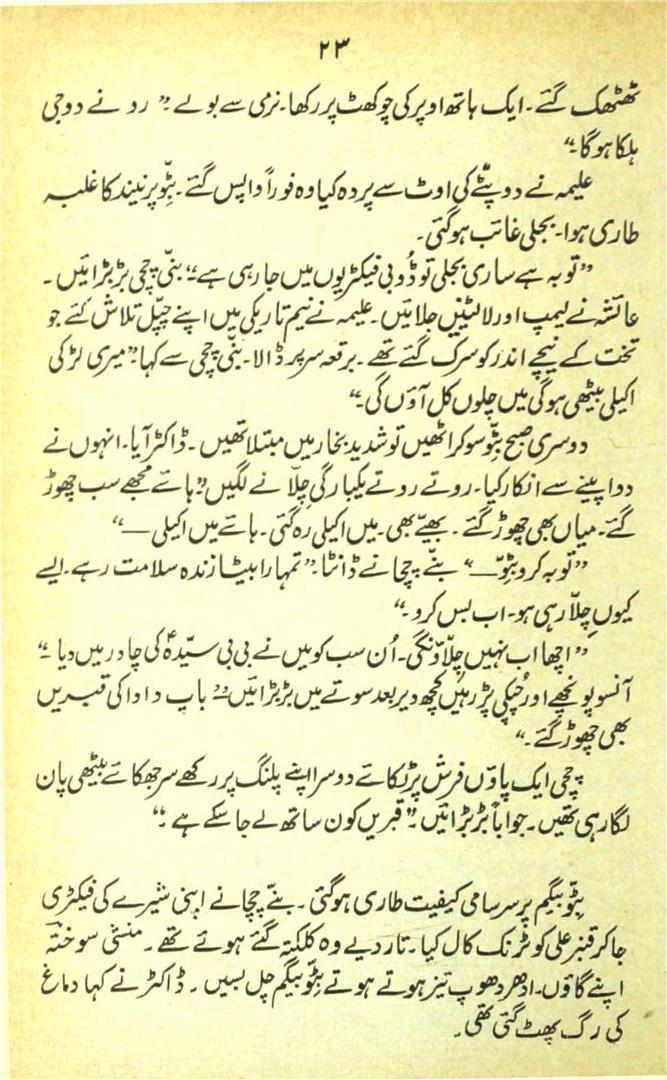 ۲۳
ٹھٹھک گئے۔ ایک ہاتھ اوپر کی چوکھٹ پر رکھا۔ نرمی سے بولے۔ ”رونے دو جی
ہلکا ہوگا۔“
علیمہ نے دوپٹے کی اوٹ سے پردہ کیا وہ فوراً واپس گئے۔ بٹّو پر نیند کا غلبہ
طاری ہوا۔ بجلی غائب ہوگئی۔
”توبہ ہے ساری بجلی تو ڈُوبی فیکٹریوں میں جارہی ہے“ بنّی چچی بڑبڑائیں۔
عائشہ نے لیمپ اور لالٹینیں جلائیں۔ علیمہ نے نیم تاریکی میں اپنے چپّل تلاش کئے جو
تخت کے نیچے اندر کو سرک گئے تھے۔ برقعہ سر پر ڈالا۔ بنّی چچی سے کہا۔ ”میری لڑکی
اکیلی بیٹھی ہوگی میں چلوں کل آؤں گی۔“
دوسری صبح بٹّو سو کر اٹھیں تو شدید بخار میں مبتلا تھیں۔ ڈاکٹر آیا۔ انہوں نے
دوا پینے سے انکار کیا۔ روتے روتے یکبارگی چلّانے لگیں ”ہائے مجھے سب چھوڑ
گئے۔ میاں بھی چھوڑ گئے۔ بھیّے بھی۔ میں اکیلی رہ گئی۔ ہائے میں اکیلی —“
”توبہ کرو بٹّو —“ بنّے چچا نے ڈانٹا۔ ”تمہارا بیٹا زندہ سلامت رہے۔ ایسے
کیوں چلّا رہی ہو۔ اب بس کرو۔“
”اچھا اب نہیں چلّاؤنگی۔ اُن سب کو میں نے بی بی سیّدہؑ کی چادر میں دیا۔“
آنسو پونچھے اور چُپکی پڑ رہیں کچھ دیر بعد سوتے میں بڑبڑائیں ”باپ دادا کی قبریں
بھی چھوڑ گئے۔“
چچی ایک پاؤں فرش پر ٹکائے دوسرا اپنے پلنگ پر رکھے سر جھکائے بیٹھی پان
لگا رہی تھیں۔ جواباً بڑبڑائیں۔ ”قبریں کون ساتھ لے جا سکے ہے۔“
بٹّو بیگم پر سرسامی کیفیت طاری ہوگئی۔ بنّے چچا نے اپنی شیرے کی فیکٹری
جا کر قنبر علی کو ٹرنک کال کیا۔ تار دیے وہ کلکتہ گئے ہوئے تھے۔ منشی سوختہ
اپنے گاؤں۔ ادھر دھوپ تیز ہوتے ہوتے بٹّو بیگم چل بسیں۔ ڈاکٹر نے کہا دماغ
کی رگ پھٹ گئی تھی۔